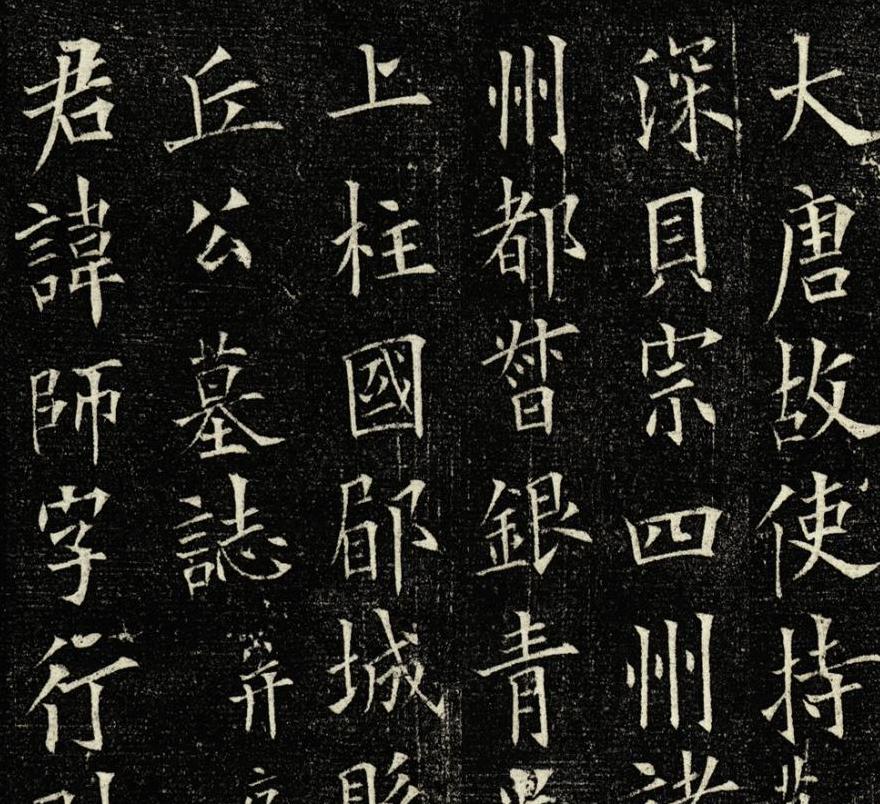 大唐故使持
深貝宗四州諸
州都督銀青
上柱國郈城縣
丘公墓誌并
君諱師字行